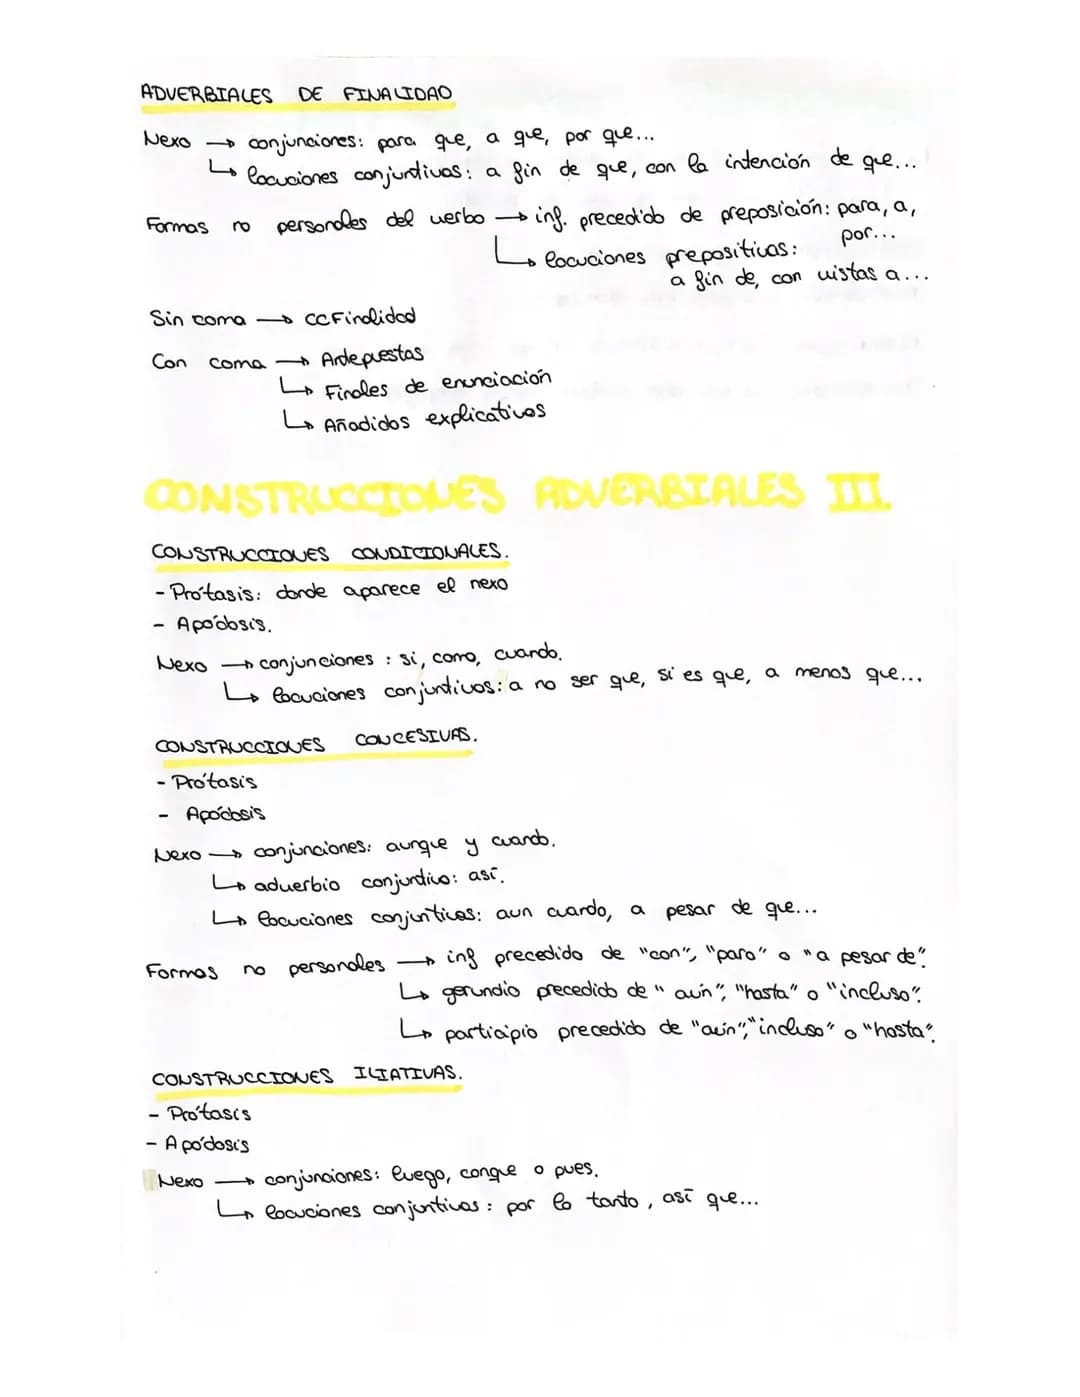 ADVERBIALES DE FINALIDAD
Nexo → conjunciones: para que, a que, por que...
↳ locuciones conjuntivas: a fin de que, con la intención de que...
Formas no personales del verbo → inf. precedido de preposición: para, a, por...
↳ locuciones prepositivas: a fin de, con vistas a...
Sin coma → CCFinalidad
Con coma → Antepuestas
↳ Finales de enunciación
↳ Añadidos explicativos
CONSTRUCCIONES ADVERBIALES III
CONSTRUCCIONES CONDICIONALES.
- Prótasis: donde aparece el nexo
- Apódosis.
Nexo → conjunciones: si, como, cuando.
↳ locuciones conjuntivas: a no ser que, si es que, a menos que...
CONSTRUCCIONES CONCESIVAS.
- Prótasis
- Apódosis
Nexo → conjunciones: aunque y cuando.
↳ adverbio conjuntivo: así.
↳ locuciones conjuntivas: aun cuando, a pesar de que...
Formas no personales → inf precedido de "con", "para" o "a pesar de".
↳ gerundio precedido de "aún", "hasta" o "incluso".
↳ participio precedido de "aún", "incluso" o "hasta".
CONSTRUCCIONES ILIATIVAS.
- Prótasis
- Apódosis
Nexo → conjunciones: luego, conque o pues.
↳ locuciones conjuntivas: por lo tanto, así que...